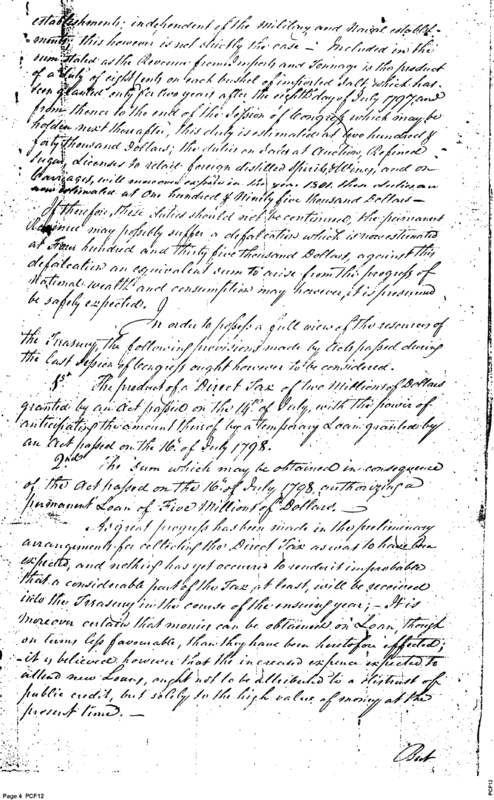 establishments; independent of the Military and Naval establish-
ments; this however is not strictly the case — Included in the
sum stated as the Revenue from imposts and Tonnage is the product
of a duty of eight Cents on each bushel of imported Salt, which has
been granted only for two years after the eighth day of July 1797, and
from thence to the end of the Session of Congress which may be
holden next thereafter; this duty is estimated at two hundred &
forty thousand Dollars; the duties on Sales at Auction, Refined
Sugar, Licenses to retail foreign distilled Spirits & Wines, and on
Carriages, will expire in the year 1801. these duties are
now estimated at One hundred & Ninety five thousand Dollars —
If therefore these duties should not be continued, the permanent
Revenue may possibly suffer a defalcation which is now estimated
at Four hundred and thirty five thousand Dollars, against this
defalcation an equivalent sum to arise from the progress of
National wealth and consumption may however, it is presumed
be safely expected.
In order to possess a full view of the resources of
the Treasury, the following provisions made by Acts passed during
the last Session of Congress ought however to be considered.
1st. The product of a Direct Tax of two Millions of Dollars
granted by an Act passed on the 14th of July, with the power of
anticipating the amount thereof by a temporary Loan granted by
an Act passed on the 16th of July 1798.
2nd. The Sum which may be obtained in consequence
of the Act passed on the 16th of July 1798, authorizing a
permanent Loan of Five Millions of Dollars. —
As great progress has been made in the preliminary
arrangements for collecting the Direct Tax as was to have been
expected, and nothing has yet occurred to render it improbable
that a considerable part of the Tax, at least, will be received
into the Treasury in the course of the ensuing year; — It is
moreover certain that monies can be obtained on Loan, though
on terms less favourable, than they have been heretofore effected;
it is believed however that the increased expence expected to
attend new Loans, ought not to be attributed to a distrust of
public credit, but solely to the high value of money at the
present time. —
But
Page 4 PCF12
PCF12